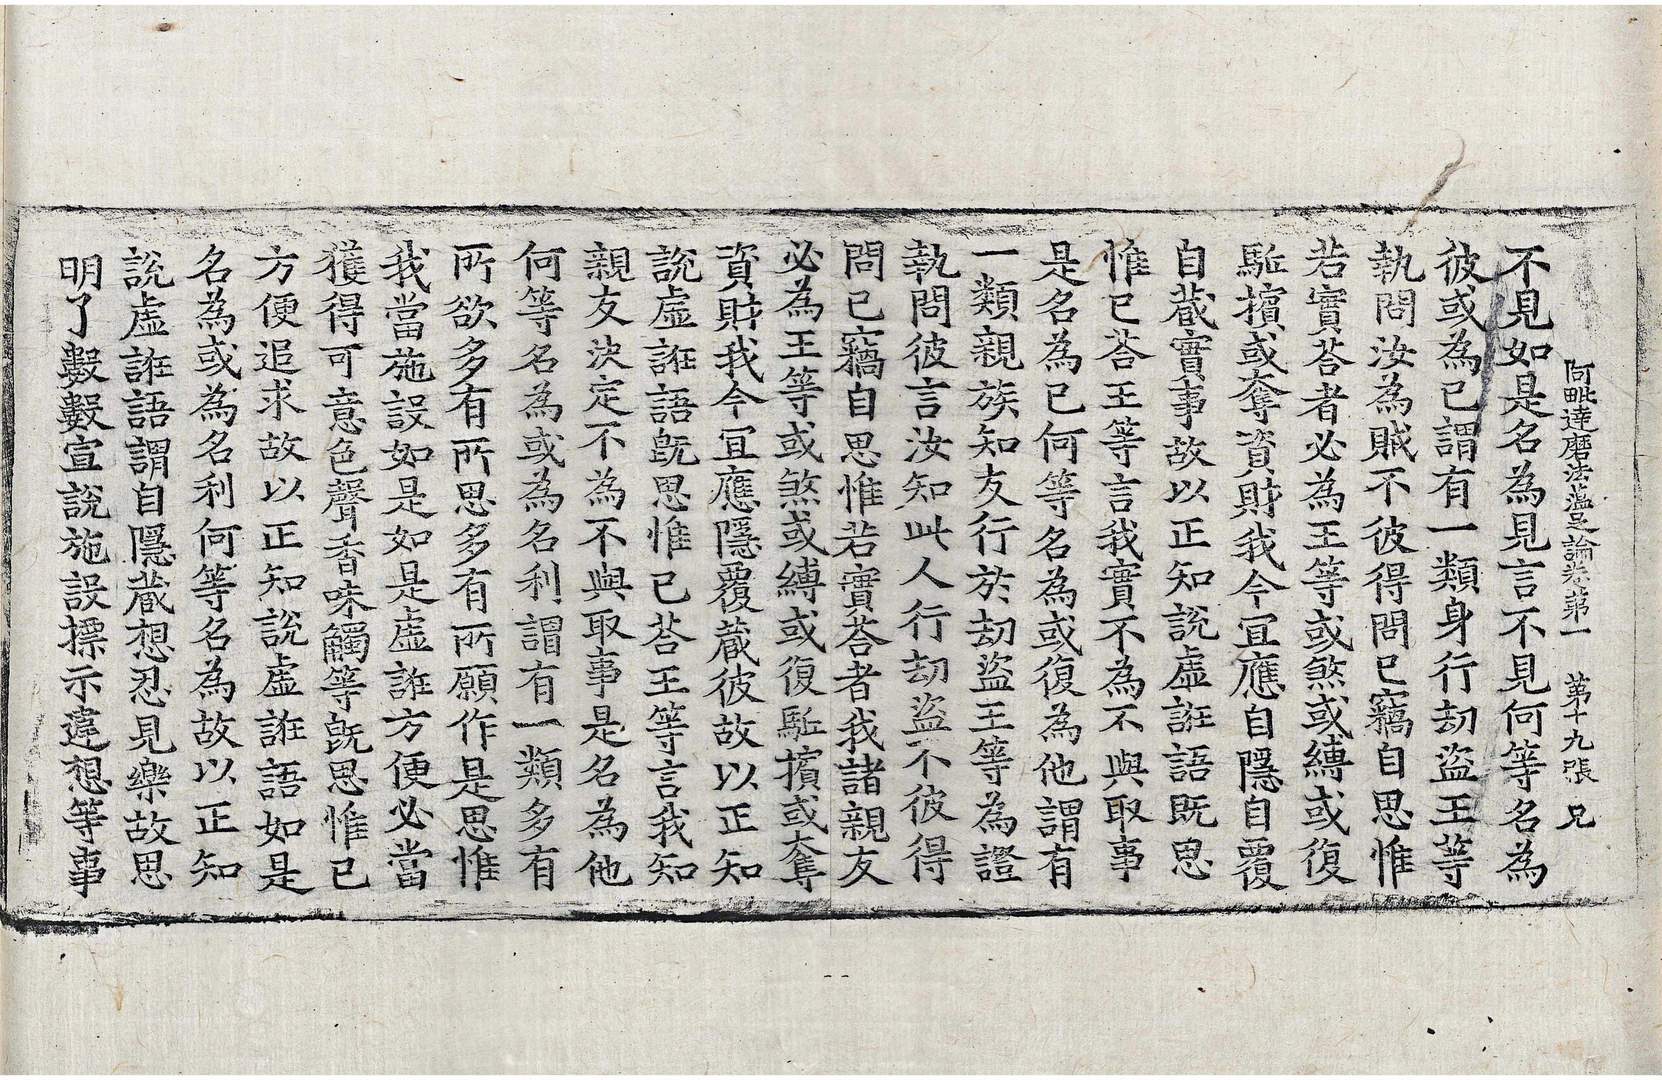 阿毗達磨法蘊足論卷苐一 苐十九張 兄
不見如是名為見言不見何等名為
彼或為已謂有一類身行刧盜王等
執問汝為賊不彼得問已竊自思惟
若實荅者必為王等或煞或縛或復
駈擯或奪資財我今冝應自隱自覆
自蔵實事故以正知說虛誑語既思
惟已荅王等言我實不為不與取事
是名為已何等名為或復為他謂有
一類親族知友行於刧盜王等為證
執問彼言汝知此人行刧盜不彼得
問已竊自思惟若實荅者我諸親友
必為王等或煞或縛或復駈擯或奪
資財我今冝應隱覆蔵彼故以正知
說虛誑語旣思惟已荅王等言我知
親友決定不為不與取事是名為他
何等名為或為名利謂有一類多有
所欲多有所思多有所願作是思惟
我當施設如是如是虛誑方便必當
獲得可意色聲香味觸等旣思惟已
方便追求故以正知說虛誑語如是
名為或為名利何等名為故以正知
說虛誑語謂自隱蔵想忍見樂故思
明了數數宣說施設摽示違想等事